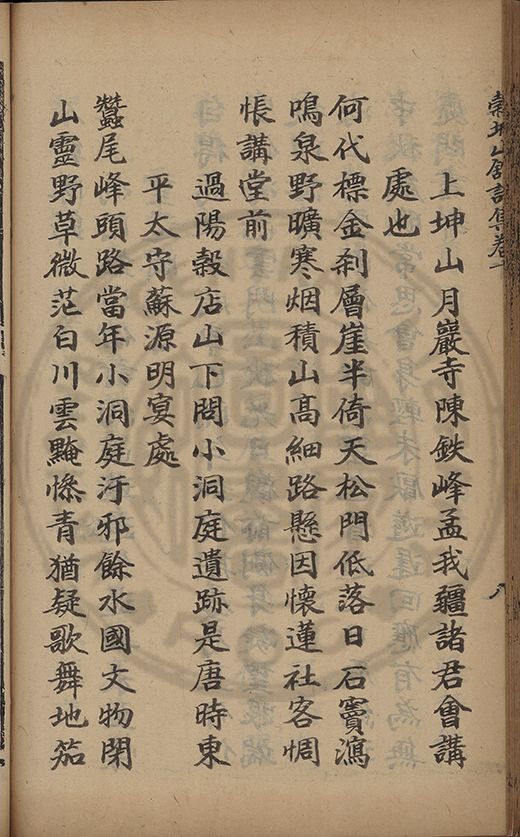 上坤山月巖寺陳鉄峰孟我疆諸君會講
處也
何代標金刹層崖半倚天松門低落日石竇瀉
鳴泉野曠寒烟積山高細路懸因懷蓮社客惆
悵講堂前
過陽穀店山下問小洞庭遺跡是唐時東
平太守蘇源明宴處
蠶尾峰頭路當年小洞庭汙邪餘水國文物閉
山靈野草微茫白川雲黤慘青猶疑歌舞地笳